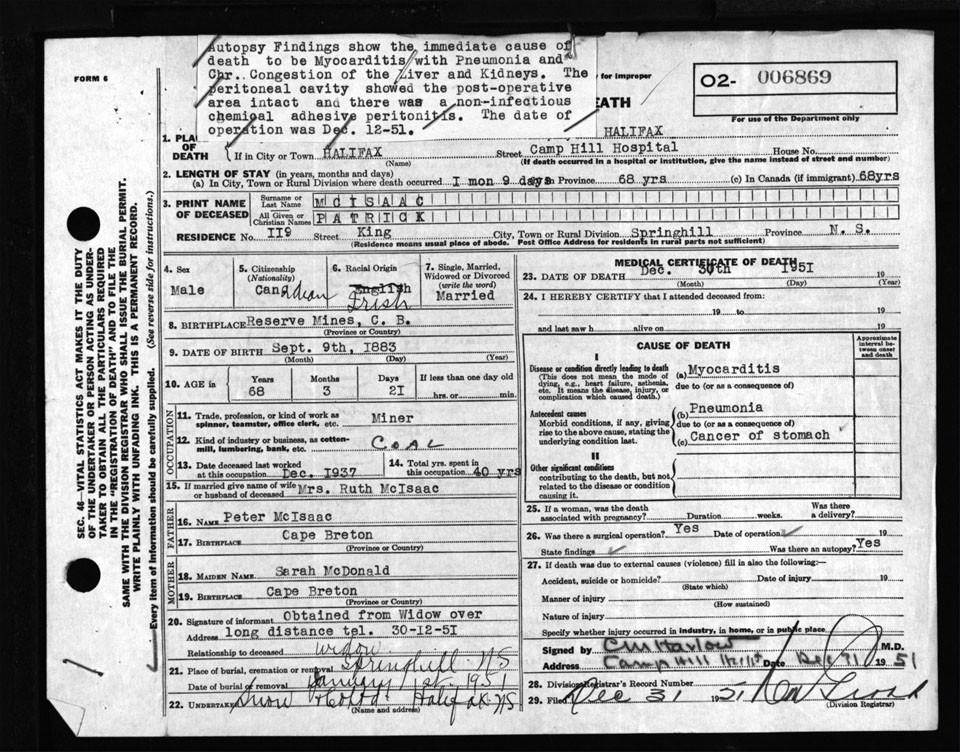 FORM 6
Autopsy Findings show the immediate cause of
death to be Myocarditis with Pneumonia and
Chr. Congestion of the Liver and Kidneys. The
peritoneal cavity showed the post-operative
area intact and there was a non-infectious
chemical adhesive peritonitis. The date of
operation was Dec. 12-51.
for Improper
EATH
O2- 006869
For use of the Department only
SEC. 46—VITAL STATISTICS ACT MAKES IT THE DUTY
OF THE UNDERTAKER OR PERSON ACTING AS UNDER-
TAKER TO OBTAIN ALL THE PARTICULARS REQUIRED
IN THE "REGISTRATION OF DEATH" AND TO FILE THE
SAME WITH THE DIVISION REGISTRAR WHO SHALL ISSUE THE BURIAL PERMIT.
WRITE PLAINLY WITH UNFADING INK. THIS IS A PERMANENT RECORD.
Every item of information should be carefully supplied. (See reverse side for instructions.)
1. PLA
OF
DEATH
HALIFAX
If in City or Town HALIFAX Street Camp Hill Hospital House No.
(Name) (If death occurred in a hospital or institution, give the name instead of street and number)
2. LENGTH OF STAY (in years, months and days)
(a) In City, Town or Rural Division where death occurred I mon 9 days In Province 68 yrs (c) In Canada (if immigrant) 68yrs
3. PRINT NAME OF DECEASED
Surname or Last Name MCISAAC
All Given or Christian Names PATRICK
RESIDENCE No. II9 Street King City, Town or Rural Division Springhill Province N. S.
(Residence means usual place of abode. Post Office Address for residents in rural parts not sufficient)
4. Sex Male
5. Citizenship (Nationality) Canadian
6. Racial Origin English Irish
7. Single, Married, Widowed or Divorced (write the word) Married
8. BIRTHPLACE Reserve Mines, C. B.
(Province or Country)
9. DATE OF BIRTH Sept. 9th, I883
(Month) (Day) (Year)
10. AGE in Years 68 Months 3 Days 2I If less than one day old hrs. or min.
OCCUPATION
11. Trade, profession, or kind of work as spinner, teamster, office clerk, etc. Miner
12. Kind of industry or business, as cotton-mill, lumbering, bank, etc. COAL
13. Date deceased last worked at this occupation Dec. I937
14. Total yrs. spent in this occupation 40 yrs
15. If married give name of wife or husband of deceased Mrs. Ruth McIsaac
FATHER
16. NAME Peter McIsaac
17. BIRTHPLACE Cape Breton
(Province or Country)
MOTHER
18. MAIDEN NAME Sarah McDonald
19. BIRTHPLACE Cape Breton
(Province or Country)
20. Signature of informant Obtained from Widow over
Address long distance tel. 30-12-5I
Relationship to deceased widow
21. Place of burial, cremation or removal Springhill NS
Date of burial or removal January 1st. 1951
22. UNDERTAKER Snow & Co Ltd. Halifax NS
(Name and address)
MEDICAL CERTIFICATE OF DEATH
23. DATE OF DEATH Dec. 30th I95I 19
(Month) (Day) (Year)
24. I HEREBY CERTIFY that I attended deceased from:
19 to 19
and last saw h alive on 19
CAUSE OF DEATH
Approximate interval between onset and death
I
Disease or condition directly leading to death
(This does not mean the mode of dying, e.g., heart failure, asthenia, etc. It means the disease, injury, or complication which caused death.)
(a) Myocarditis
due to (or as a consequence of)
Antecedent causes
Morbid conditions, if any, giving rise to the above cause, stating the underlying condition last.
(b) Pneumonia
due to (or as a consequence of)
(c) Cancer of stomach
II
Other significant conditions
contributing to the death, but not related to the disease or condition causing it.
25. If a woman, was the death associated with pregnancy? Duration weeks. Was there a delivery?
26. Was there a surgical operation? Yes Date of operation 19
State findings Was there an autopsy? Yes
27. If death was due to external causes (violence) fill in also the following:—
Accident, suicide or homicide? Date of injury 19
(State which)
Manner of injury
(How sustained)
Nature of injury
Specify whether injury occurred in industry, in home, or in public place
Signed by CM Harlow M.D.
Address Camp Hill Date Dec 31 1951
28. Division Registrar's Record Number
29. Filed Dec 31 1951
(Division Registrar)